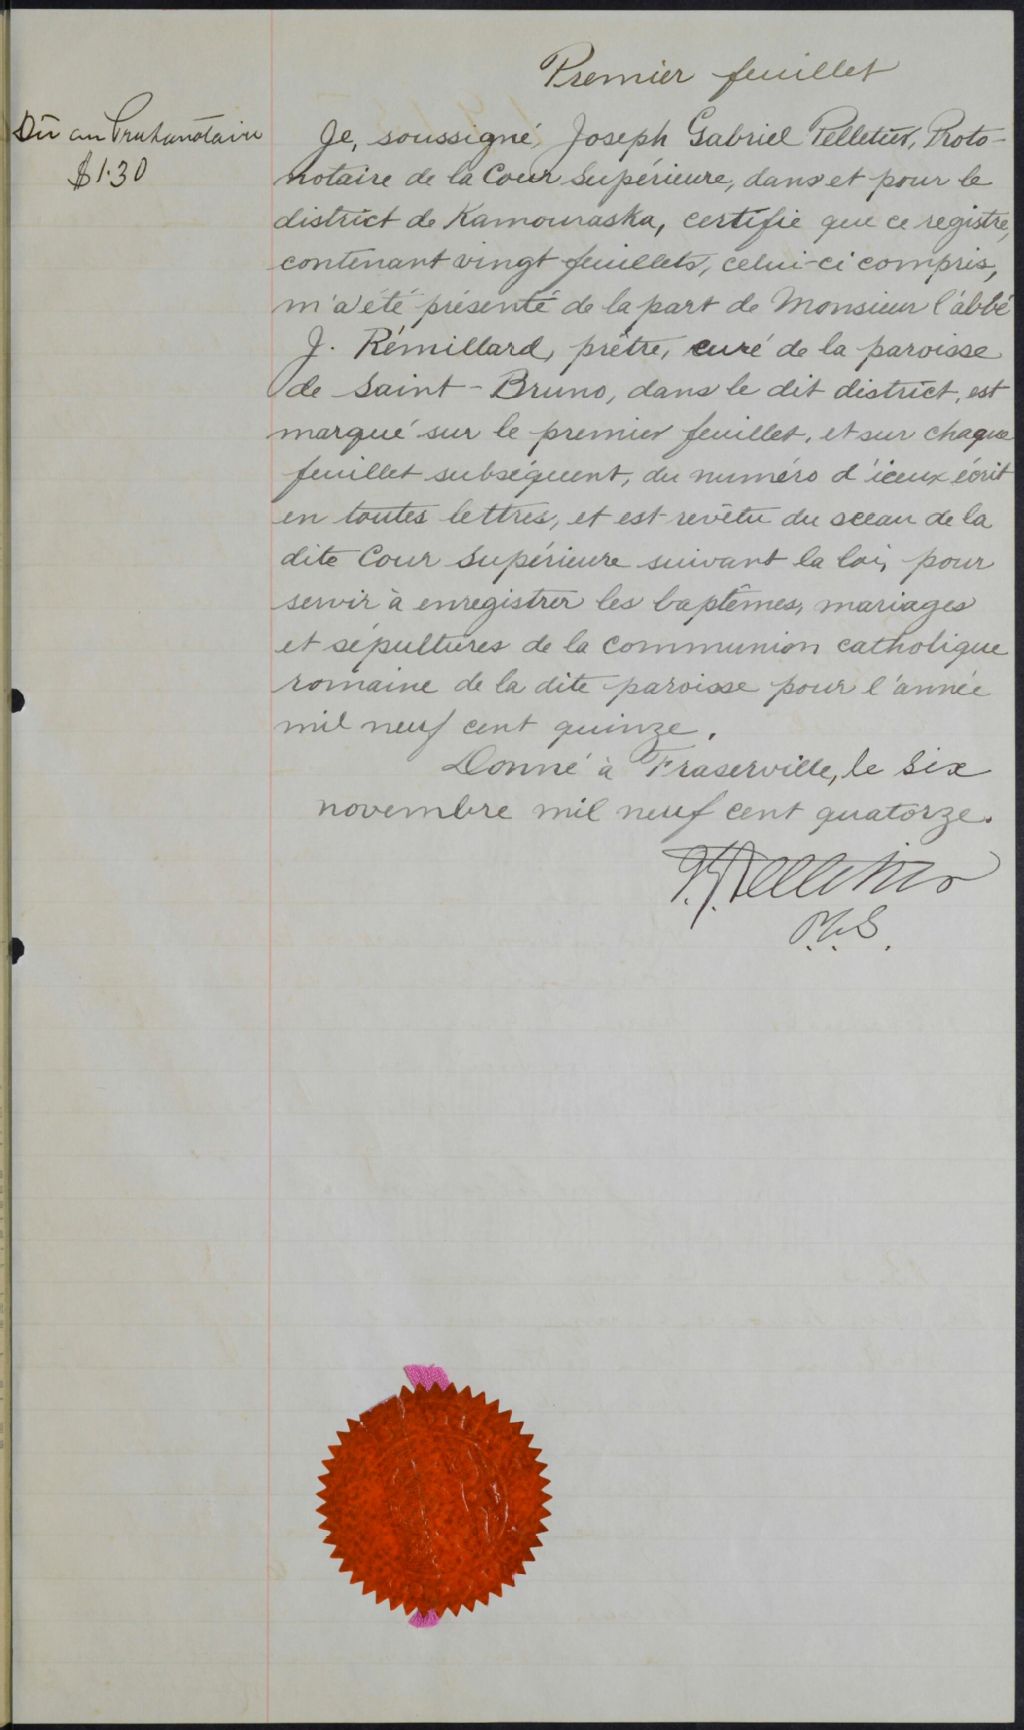 Premier feuillet
Dû au Protonotaire
$1.30
Je, soussigné, Joseph Gabriel Pelletier, Proto-
notaire de la Cour Supérieure, dans et pour le
district de Kamouraska, certifie que ce registre,
contenant vingt feuillets, celui-ci compris,
m'a été présenté de la part de Monsieur l'abbé
J. Rémillard, prêtre, curé de la paroisse
de Saint-Bruno, dans le dit district, est
marqué sur le premier feuillet, et sur chaque
feuillet subséquent, du numéro d'iceux écrit
en toutes lettres, et est revêtu du sceau de la
dite Cour Supérieure suivant la loi, pour
servir à enregistrer les baptêmes, mariages
et sépultures de la Communion catholique
romaine de la dite paroisse pour l'année
mil neuf cent quinze.
Donné à Fraserville, le six
novembre mil neuf cent quatorze.
J.G. Pelletier
P.C.S.